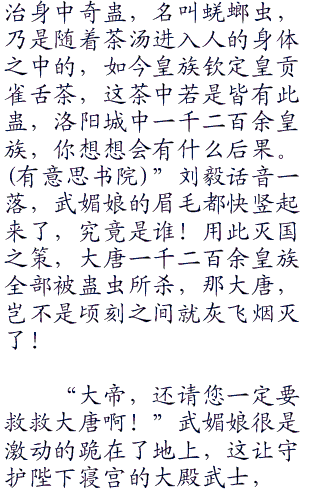 治身中奇蛊，名叫蜣螂虫，
乃是随着茶汤进入人的身体
之中的，如今皇族钦定皇贡
雀舌茶，这茶中若是皆有此
蛊，洛阳城中一千二百余皇
族，你想想会有什么后果。
(有意思书院)”刘毅话音一
落，武媚娘的眉毛都快竖起
来了，究竟是谁！用此灭国
之策，大唐一千二百余皇族
全部被蛊虫所杀，那大唐，
岂不是顷刻之间就灰飞烟灭
了！
“大帝，还请您一定要
救救大唐啊！”武媚娘很是
激动的跪在了地上，这让守
护陛下寝宫的大殿武士，